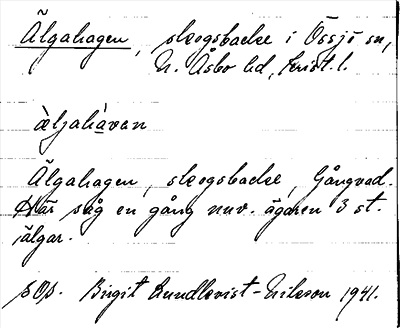 Älgahagen, skogsbacke i Össjö sn,
N. Åsbo hd, Krist. l.
äljahávan
Älgahagen, skogsbacke, Gångvad.
Här såg en gång nuv. ägaren 3 st.
älgar.
SOS. Birgit Lundkvist-Nilsson 1941.